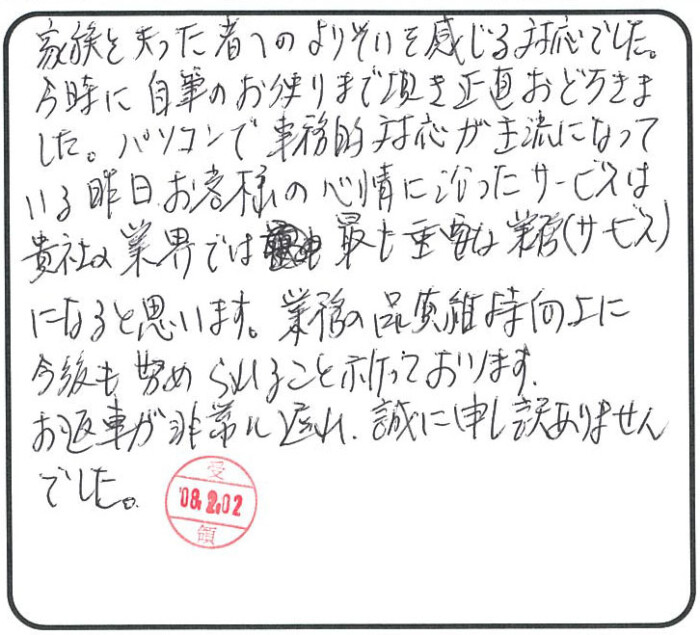 家族を失った者へのよりそいを感じる対応でした。
今時に自筆のお便りまで頂き正直おどろきま
した。パソコンで事務的対応が主流になって
いる昨日、お客様の心情に沿ったサービスは
貴社の業界では最も重要な業務(サービス)
になると思います。業務の品質維持向上に
今後も努められること祈っております。
お返事が非常に遅れ、誠に申し訳ありません
でした。
受
'08.2.02
領